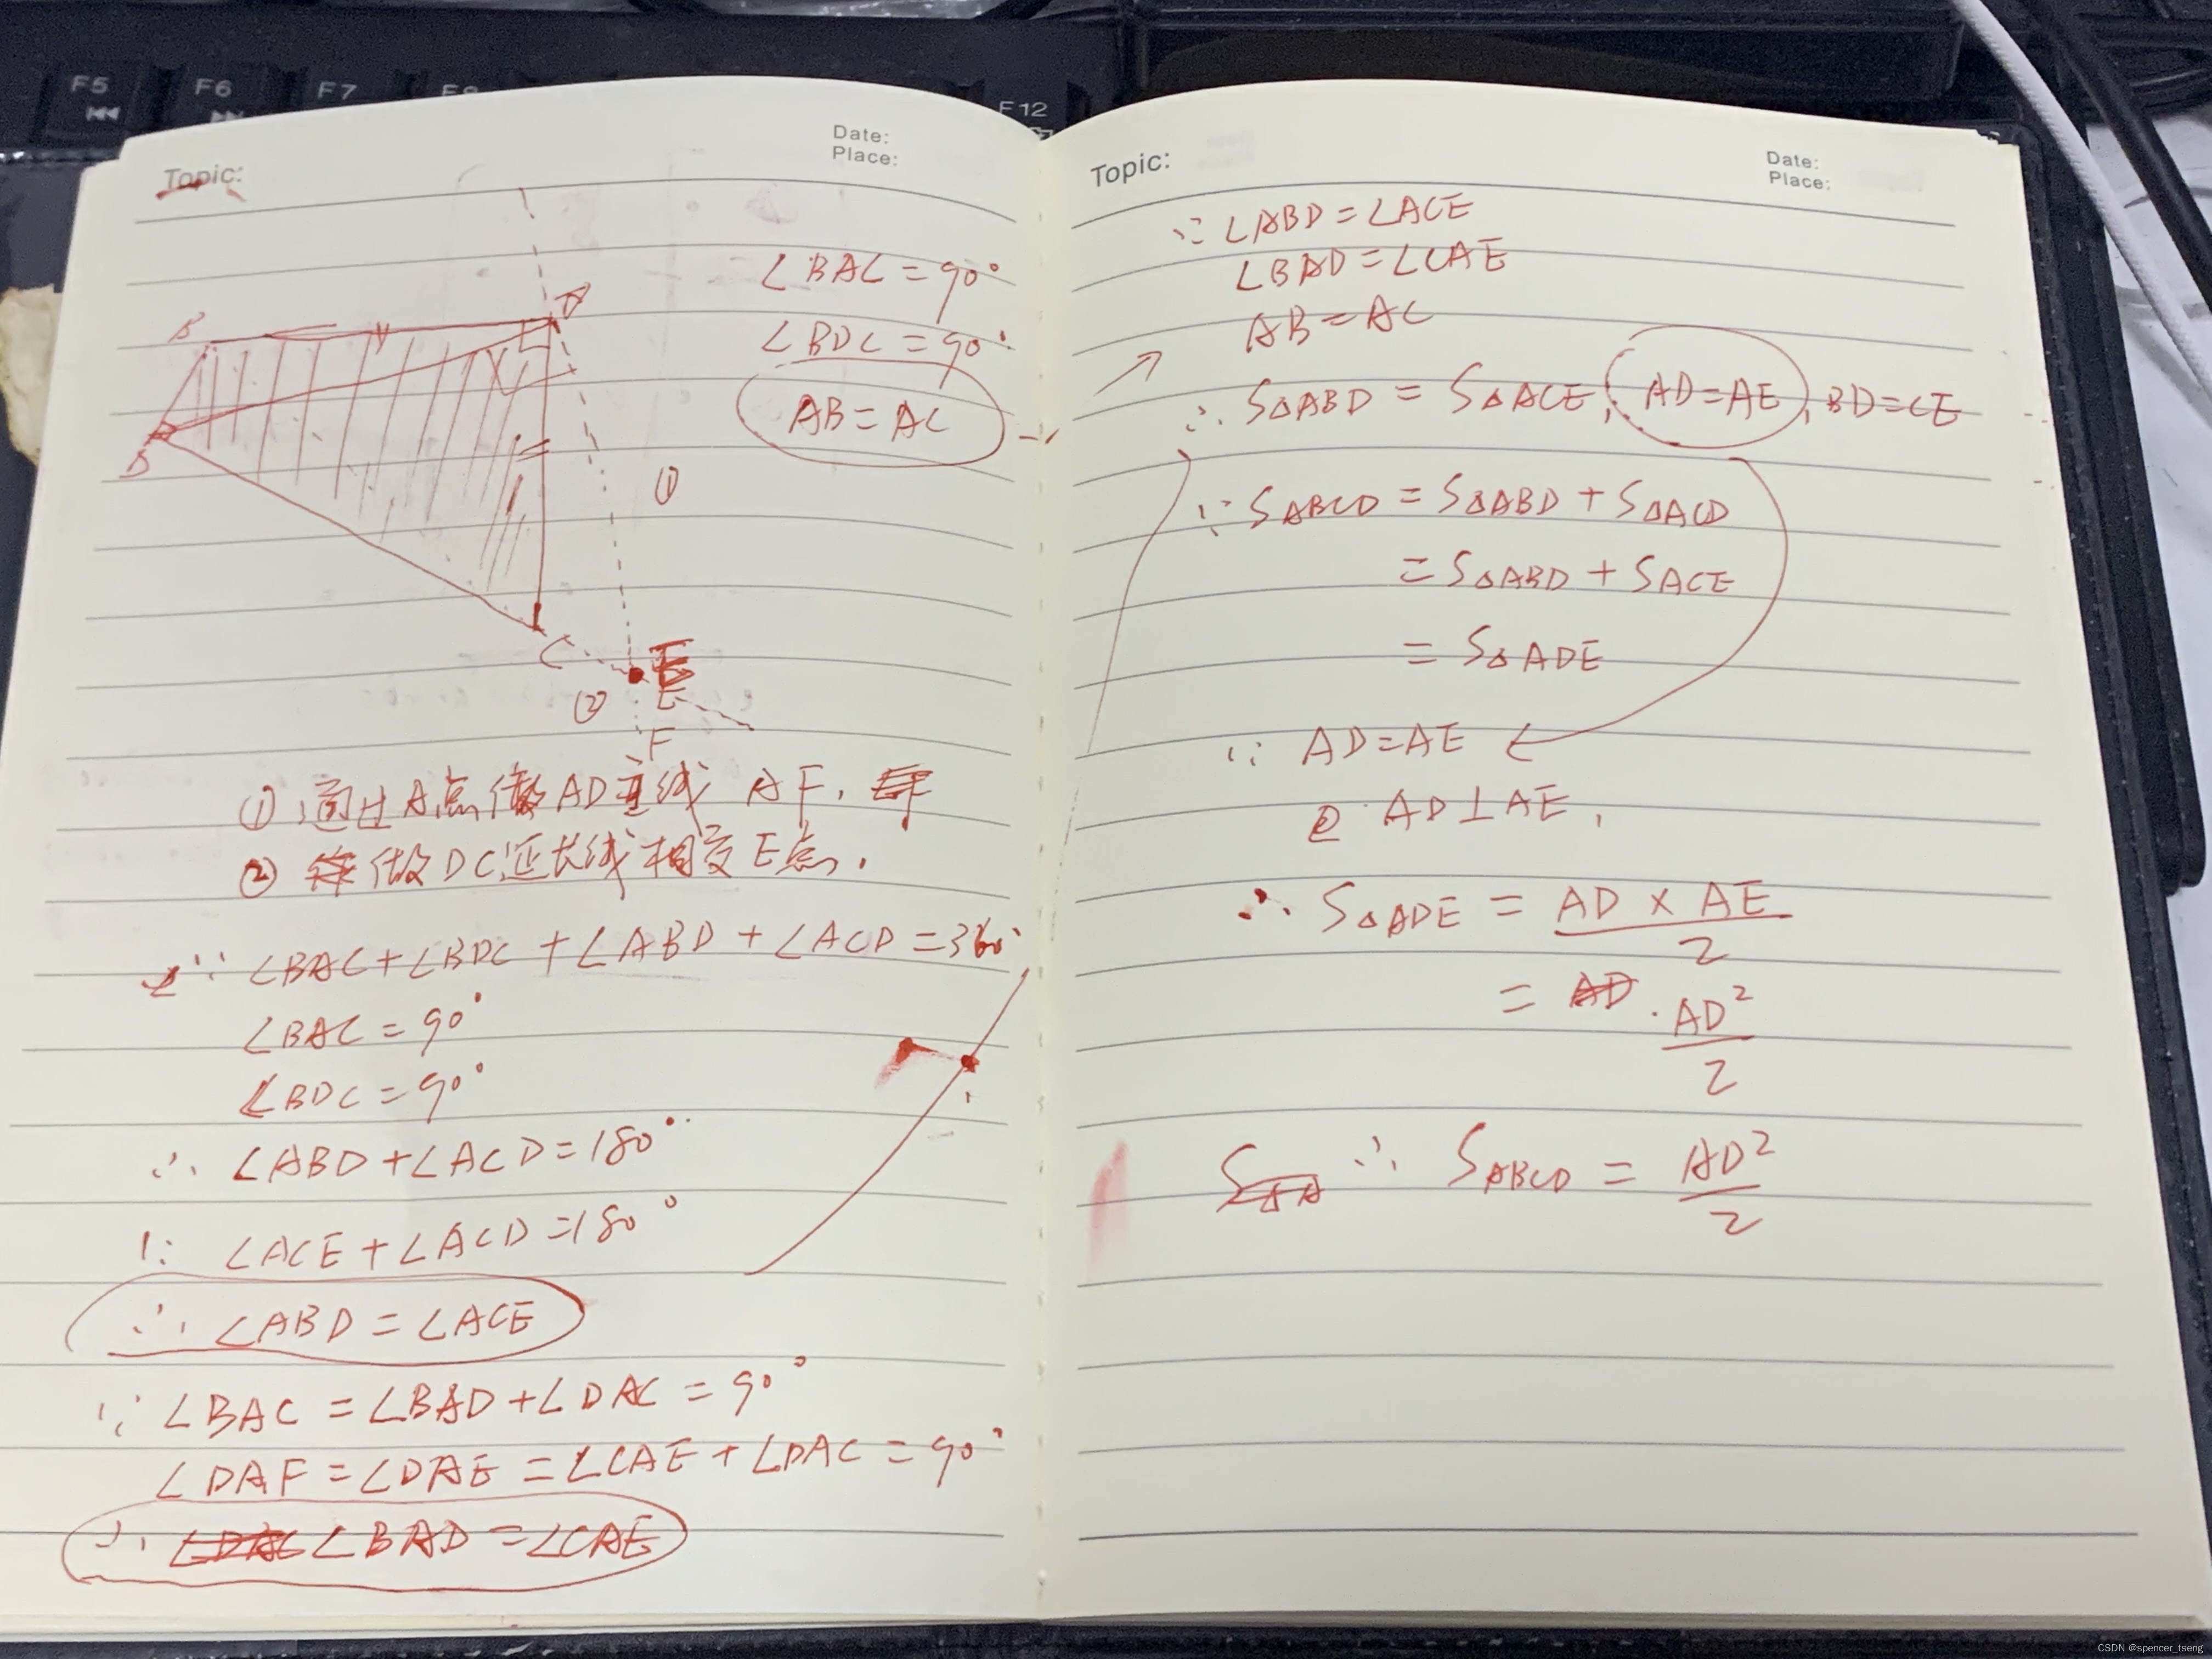 F5
F6
F7
F8
F12
Topic:
Date:
Place:
∠BAC = 90°
∠BDC = 90°
AB = AC
B
A
D
C
①
②
E
F
① 通过A点做AD垂线 AF,
② 做DC延长线相交E点.
∵ ∠BAC + ∠BDC + ∠ABD + ∠ACD = 360°
∠BAC = 90°
∠BDC = 90°
∴ ∠ABD + ∠ACD = 180°
∵ ∠ACE + ∠ACD = 180°
∴ ∠ABD = ∠ACE
∵ ∠BAC = ∠BAD + ∠DAC = 90°
∠DAF = ∠DAE = ∠CAE + ∠DAC = 90°
∴ ∠BAD = ∠CAE
Topic:
Date:
Place:
∵ ∠ABD = ∠ACE
∠BAD = ∠CAE
AB = AC
∴ S△ABD = S△ACE, AD=AE, BD=CE
∵ SABCD = S△ABD + S△ACD
= S△ABD + SACE
= S△ADE
∵ AD=AE
AD⊥AE,
∴ S△ADE = AD × AE / 2
= AD² / 2
∴ SABCD = AD² / 2
CSDN @spencer_tseng